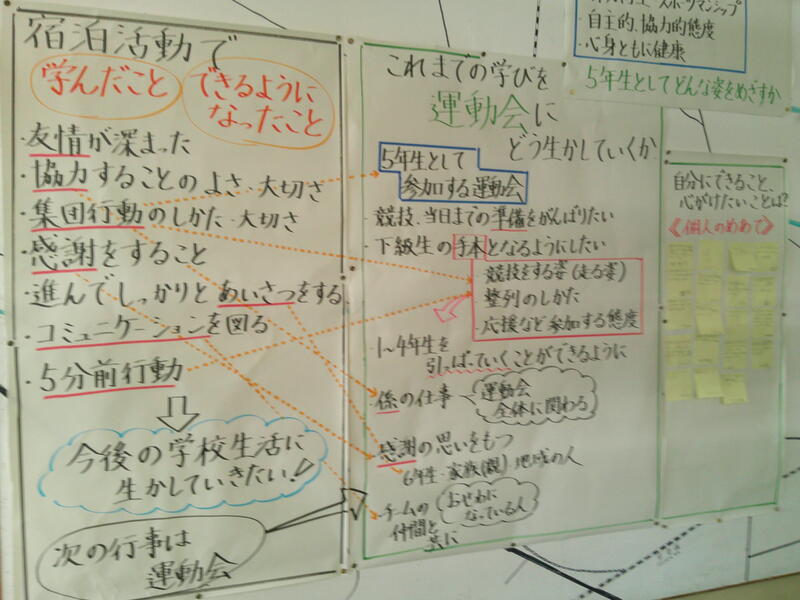 宿泊活動で
学んだこと
できるように
なったこと
・友情が深まった
・協力することのよさ・大切さ
・集団行動のしかた・大切さ
・感謝をすること
・進んでしっかりとあいさつをする
・コミュニケーションを図る
・5分前行動
今後の学校生活に
生かしていきたい!!
次の行事は
運動会
これまでの学びを
運動会に
どう生かしていくか
5年生として
参加する運動会
・競技、当日までの準備をがんばりたい
・下級生の手本となるようにしたい
・競技をする姿(走る姿)
・整列のしかた
・応援など参加する態度
・1~4年生を
引っぱっていくことができるように
・係の仕事
運動会
全体に関わる
・感謝の思いをもつ
6年生・家族(親)地域の人
おせわに
なっている人
・チームの
仲間と
共に
スポーツマンシップ
・自主的、協力的態度
・心身ともに健康
5年生としてどんな姿をめざすか
自分にできること、
心がけたいことは?
《個人のめあて》